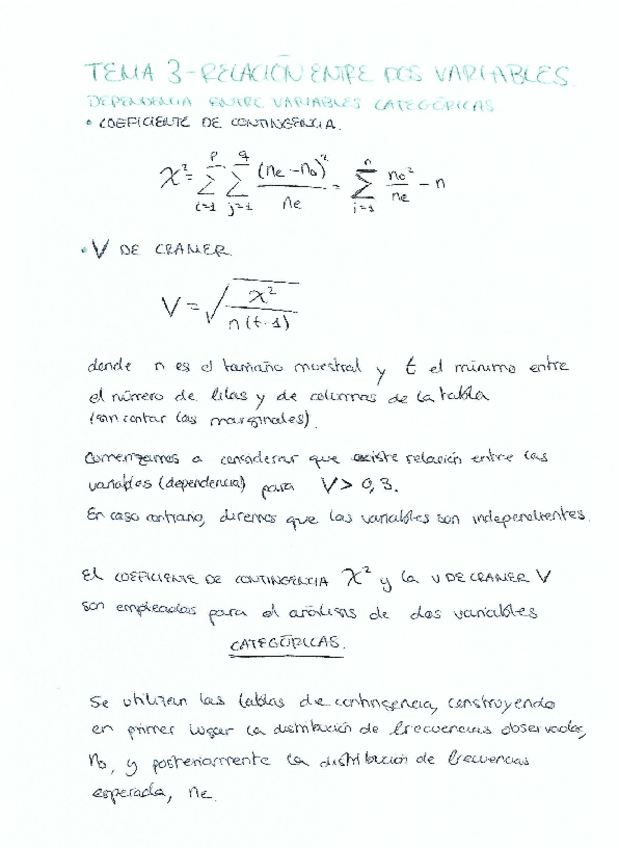 TEMA 3 - RELACIÓN ENTRE DOS VARIABLES
DEPENDENCIA ENTRE VARIABLES CATEGÓRICAS
• COEFICIENTE DE CONTINGENCIA.
χ² = Σ_{i=1}^{p} Σ_{j=1}^{q} (ne - no)²/ne = Σ_{i=1}^{n} no²/ne - n
• V DE CRAMER
V = √(χ²/n(t-1))
donde n es el tamaño muestral y t el mínimo entre
el número de filas y de columnas de la tabla
(sin contar las marginales).
Comenzamos a considerar que existe relación entre las
variables (dependencia) para V > 0,3.
En caso contrario, diremos que las variables son independientes.
El COEFICIENTE DE CONTINGENCIA χ² y la V DE CRAMER V
son empleadas para el análisis de dos variables
CATEGÓRICAS.
Se utilizan las tablas de contingencia, construyendo
en primer lugar la distribución de frecuencias observadas,
no, y posteriormente la distribución de frecuencias
esperada, ne.